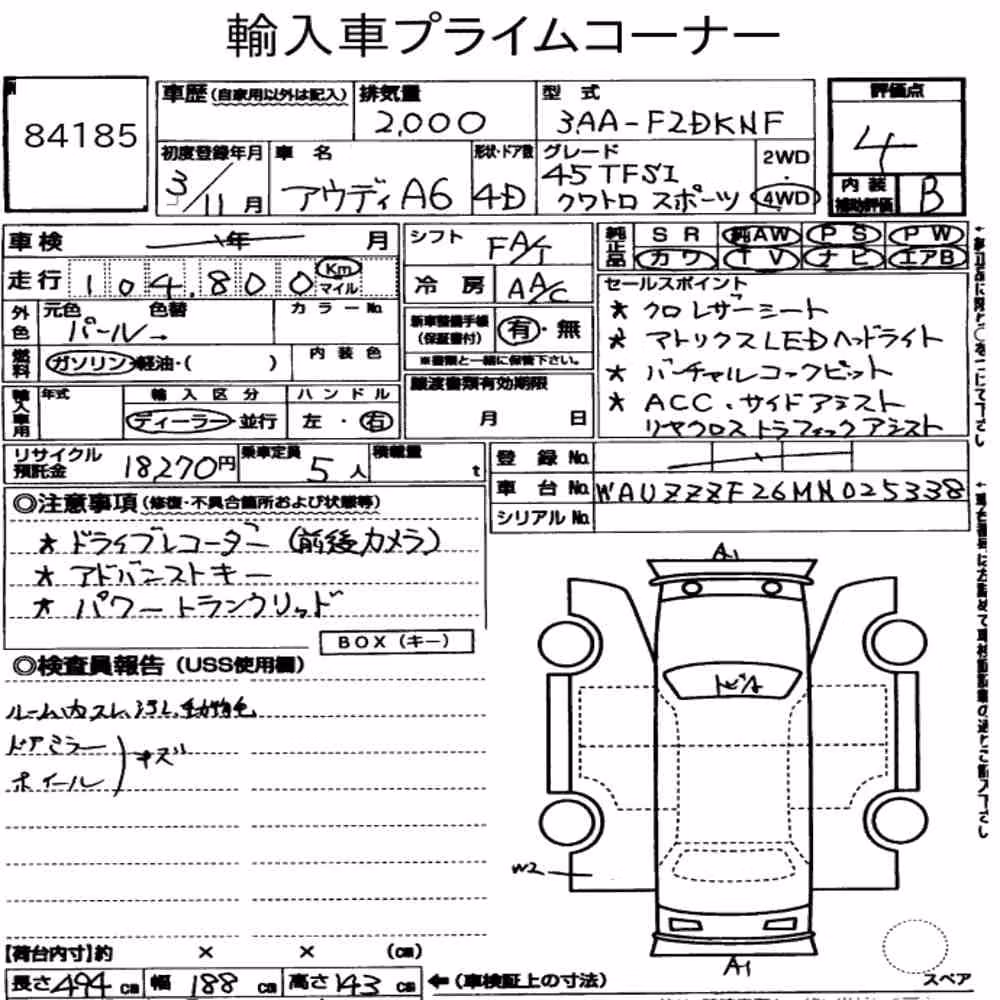 輸入車プライムコーナー
84185
車歴 (自家用以外は記入)
排気量
2,000
型式
3AA-F2DKNF
評価点
4
内装
補助評価
B
初度登録年月
3/11月
車名
アウディA6
形状・ドア数
4D
グレード
45TFSI
クワトロ スポーツ
2WD
・
4WD
車検
年 月
シフト
FA/T
純正品
SR 純AW PS PW
カワ TV ナビ エアB
走行
104,800
Km
マイル
冷房
AA/C
セールスポイント
★ クロレザーシート
★ マトリックスLEDヘッドライト
★ バーチャルコックピット
★ ACC.サイドアシスト
リヤクロストラフィックアシスト
外色
元色 色替
パール→
カラーNo.
新車整備手帳
(保証書付)
有・無
※書類と一緒に保管下さい。
燃料
ガソリン・軽油・( )
内装色
譲渡書類有効期限
月 日
輸入車用
年式
輸入区分
ディーラー・並行
ハンドル
左・右
リサイクル
預託金
18270円
乗車定員
5人
積載量
t
登録No.
車台No.
WAUZZZF26MN025338
シリアルNo.
◎注意事項(修復・不具合箇所および状態等)
★ ドライブレコーダー (前後カメラ)
★ アドバンストキー
★ パワートランクリッド
BOX (キー)
◎検査員報告 (USS使用欄)
ルーム内スレ、シミ、
ドアミラー
ホイール
キズ
A1
トビA
W2
A1
スペア
【荷台内寸】約 × × (cm)
長さ494cm 幅188cm 高さ143cm
←(車検証上の寸法)